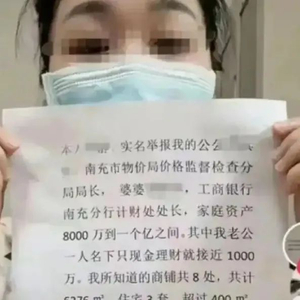 本人 , 实名举报我的公公
, 南充市物价局价格监督检查分
局局长, 婆婆 , 工商银行
南充分行计财处处长, 家庭资产
8000 万到一个亿之间。其中我老公
一人名下只现金理财就接近 1000
万。我所知道的商铺共 8 处, 共计
6276 ㎡, 住宅 3 套, 超过 400 ㎡